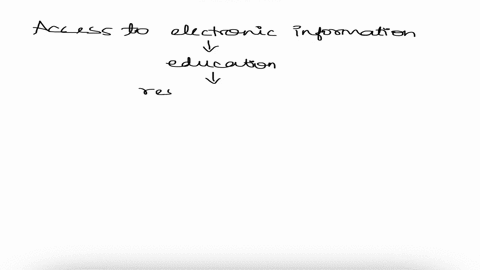 Access to electronic information
↓
education
↓
res